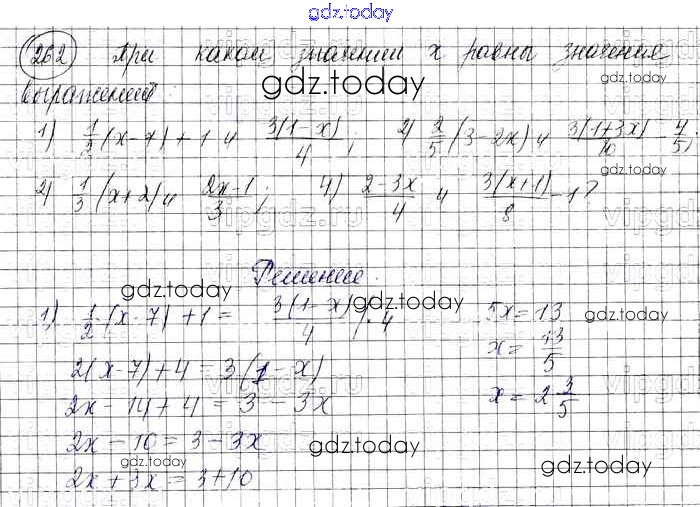 gdz.today
262 При каком значении x равны значения
выражений
gdz.today
gdz.today
1) 1/2 (x-7) + 1 и 3(1-x)/4 ; 2) 2/5 (3-2x) и 3(1+3x)/10 - 4/5;
gdz.today
2) 1/3 (x+2) и 2x-1/3 ; 4) 2-3x/4 и 3(x+1)/8 - 1?
vipgdz.ru
Решение.
gdz.today
gdz.today
gdz.today
1) 1/2 · (x-7) + 1 = 3(1-x)/4 | · 4
2(x-7) + 4 = 3(1-x)
2x - 14 + 4 = 3 - 3x
2x - 10 = 3 - 3x
gdz.today
gdz.today
2x + 3x = 3 + 10
5x = 13
x = 13/5
x = 2 3/5
gdz.today